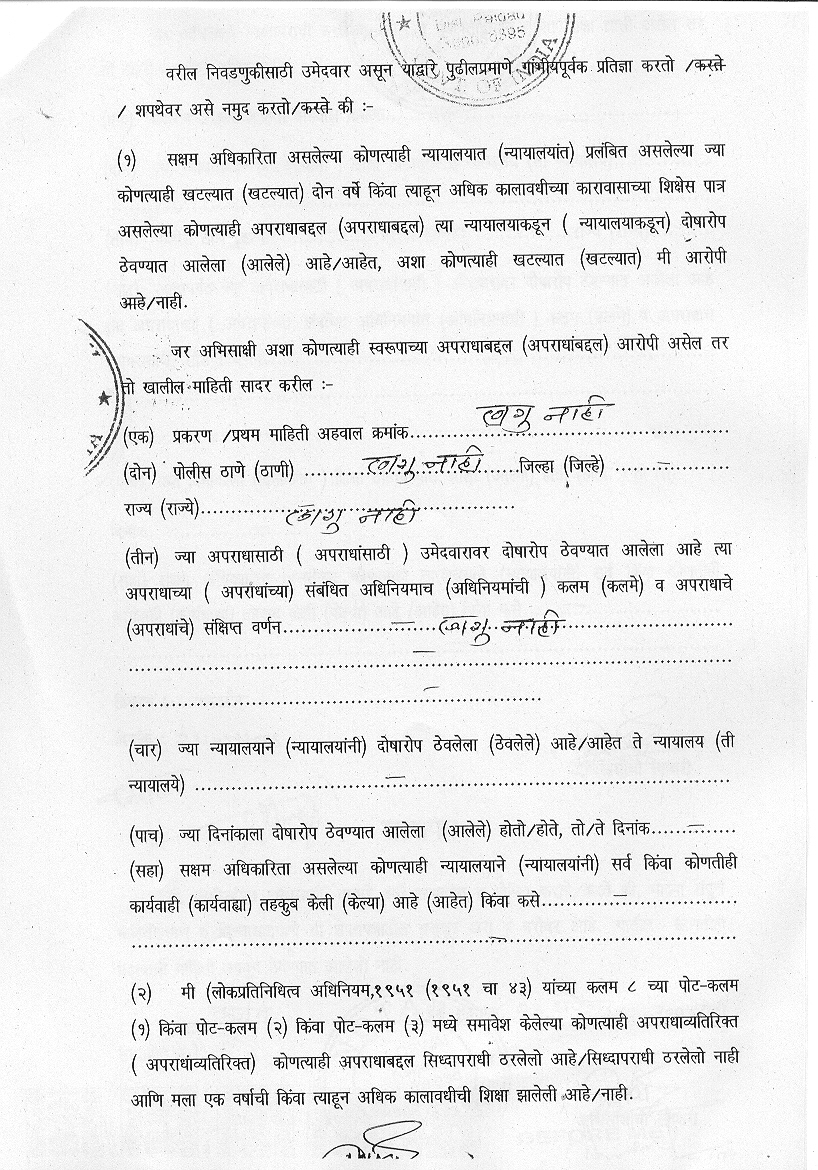 Dist Panda
5395
T. OF INDIA
वरील निवडणुकीसाठी उमेदवार असून याद्वारे पुढीलप्रमाणे गांभीयपूर्वक प्रतिज्ञा करतो /करते
/ शपथेवर असे नमुद करतो/करते की :-
(१) सक्षम अधिकारिता असलेल्या कोणत्याही न्यायालयात (न्यायालयांत) प्रलंबित असलेल्या ज्या
कोणत्याही खटल्यात (खटल्यात) दोन वर्षे किंवा त्याहून अधिक कालावधीच्या कारावासाच्या शिक्षेस पात्र
असलेल्या कोणत्याही अपराधाबद्दल (अपराधाबद्दल) त्या न्यायालयाकडून ( न्यायालयाकडून) दोषारोप
ठेवण्यात आलेला (आलेले) आहे/आहेत, अशा कोणत्याही खटल्यात (खटल्यात) मी आरोपी
आहे/नाही.
जर अभिसाक्षी अशा कोणत्याही स्वरूपाच्या अपराधाबद्दल (अपराधांबद्दल) आरोपी असेल तर
तो खालील माहिती सादर करील :-
(एक) प्रकरण /प्रथम माहिती अहवाल क्रमांक..........लागु नाही..........
(दोन) पोलीस ठाणे (ठाणी) ..........लागु नाही..........जिल्हा (जिल्हे) ........–........
राज्य (राज्ये)..........लागु नाही..........
(तीन) ज्या अपराधासाठी ( अपराधांसाठी ) उमेदवारावर दोषारोप ठेवण्यात आलेला आहे त्या
अपराधाच्या ( अपरांधांच्या) संबंधित अधिनियमाच (अधिनियमांची ) कलम (कलमे) व अपराधाचे
(अपराधांचे) संक्षिप्त वर्णन..........–....लागु नाही..........
..........–..........
..........–..........
(चार) ज्या न्यायालयाने (न्यायालयांनी) दोषारोप ठेवलेला (ठेवलेले) आहे/आहेत ते न्यायालय (ती
न्यायालये) ..........–..........
(पाच) ज्या दिनांकाला दोषारोप ठेवण्यात आलेला (आलेले) होतो/होते, तो/ते दिनांक.....–.....
(सहा) सक्षम अधिकारिता असलेल्या कोणत्याही न्यायालयाने (न्यायालयांनी) सर्व किंवा कोणतीही
कार्यवाही (कार्यवाह्या) तहकुब केली (केल्या) आहे (आहेत) किंवा कसे..........–..........
..........–..........
(२) मी (लोकप्रतिनिधित्व अधिनियम,१९५१ (१९५१ चा ४३) यांच्या कलम ८ च्या पोट-कलम
(१) किंवा पोट-कलम (२) किंवा पोट-कलम (३) मध्ये समावेश केलेल्या कोणत्याही अपराधाव्यतिरिक्त
( अपराधांव्यतिरिक्त) कोणत्याही अपराधाबद्दल सिध्दापराधी ठरलेलो आहे/सिध्दापराधी ठरलेलो नाही
आणि मला एक वर्षाची किंवा त्याहून अधिक कालावधीची शिक्षा झालेली आहे/नाही.